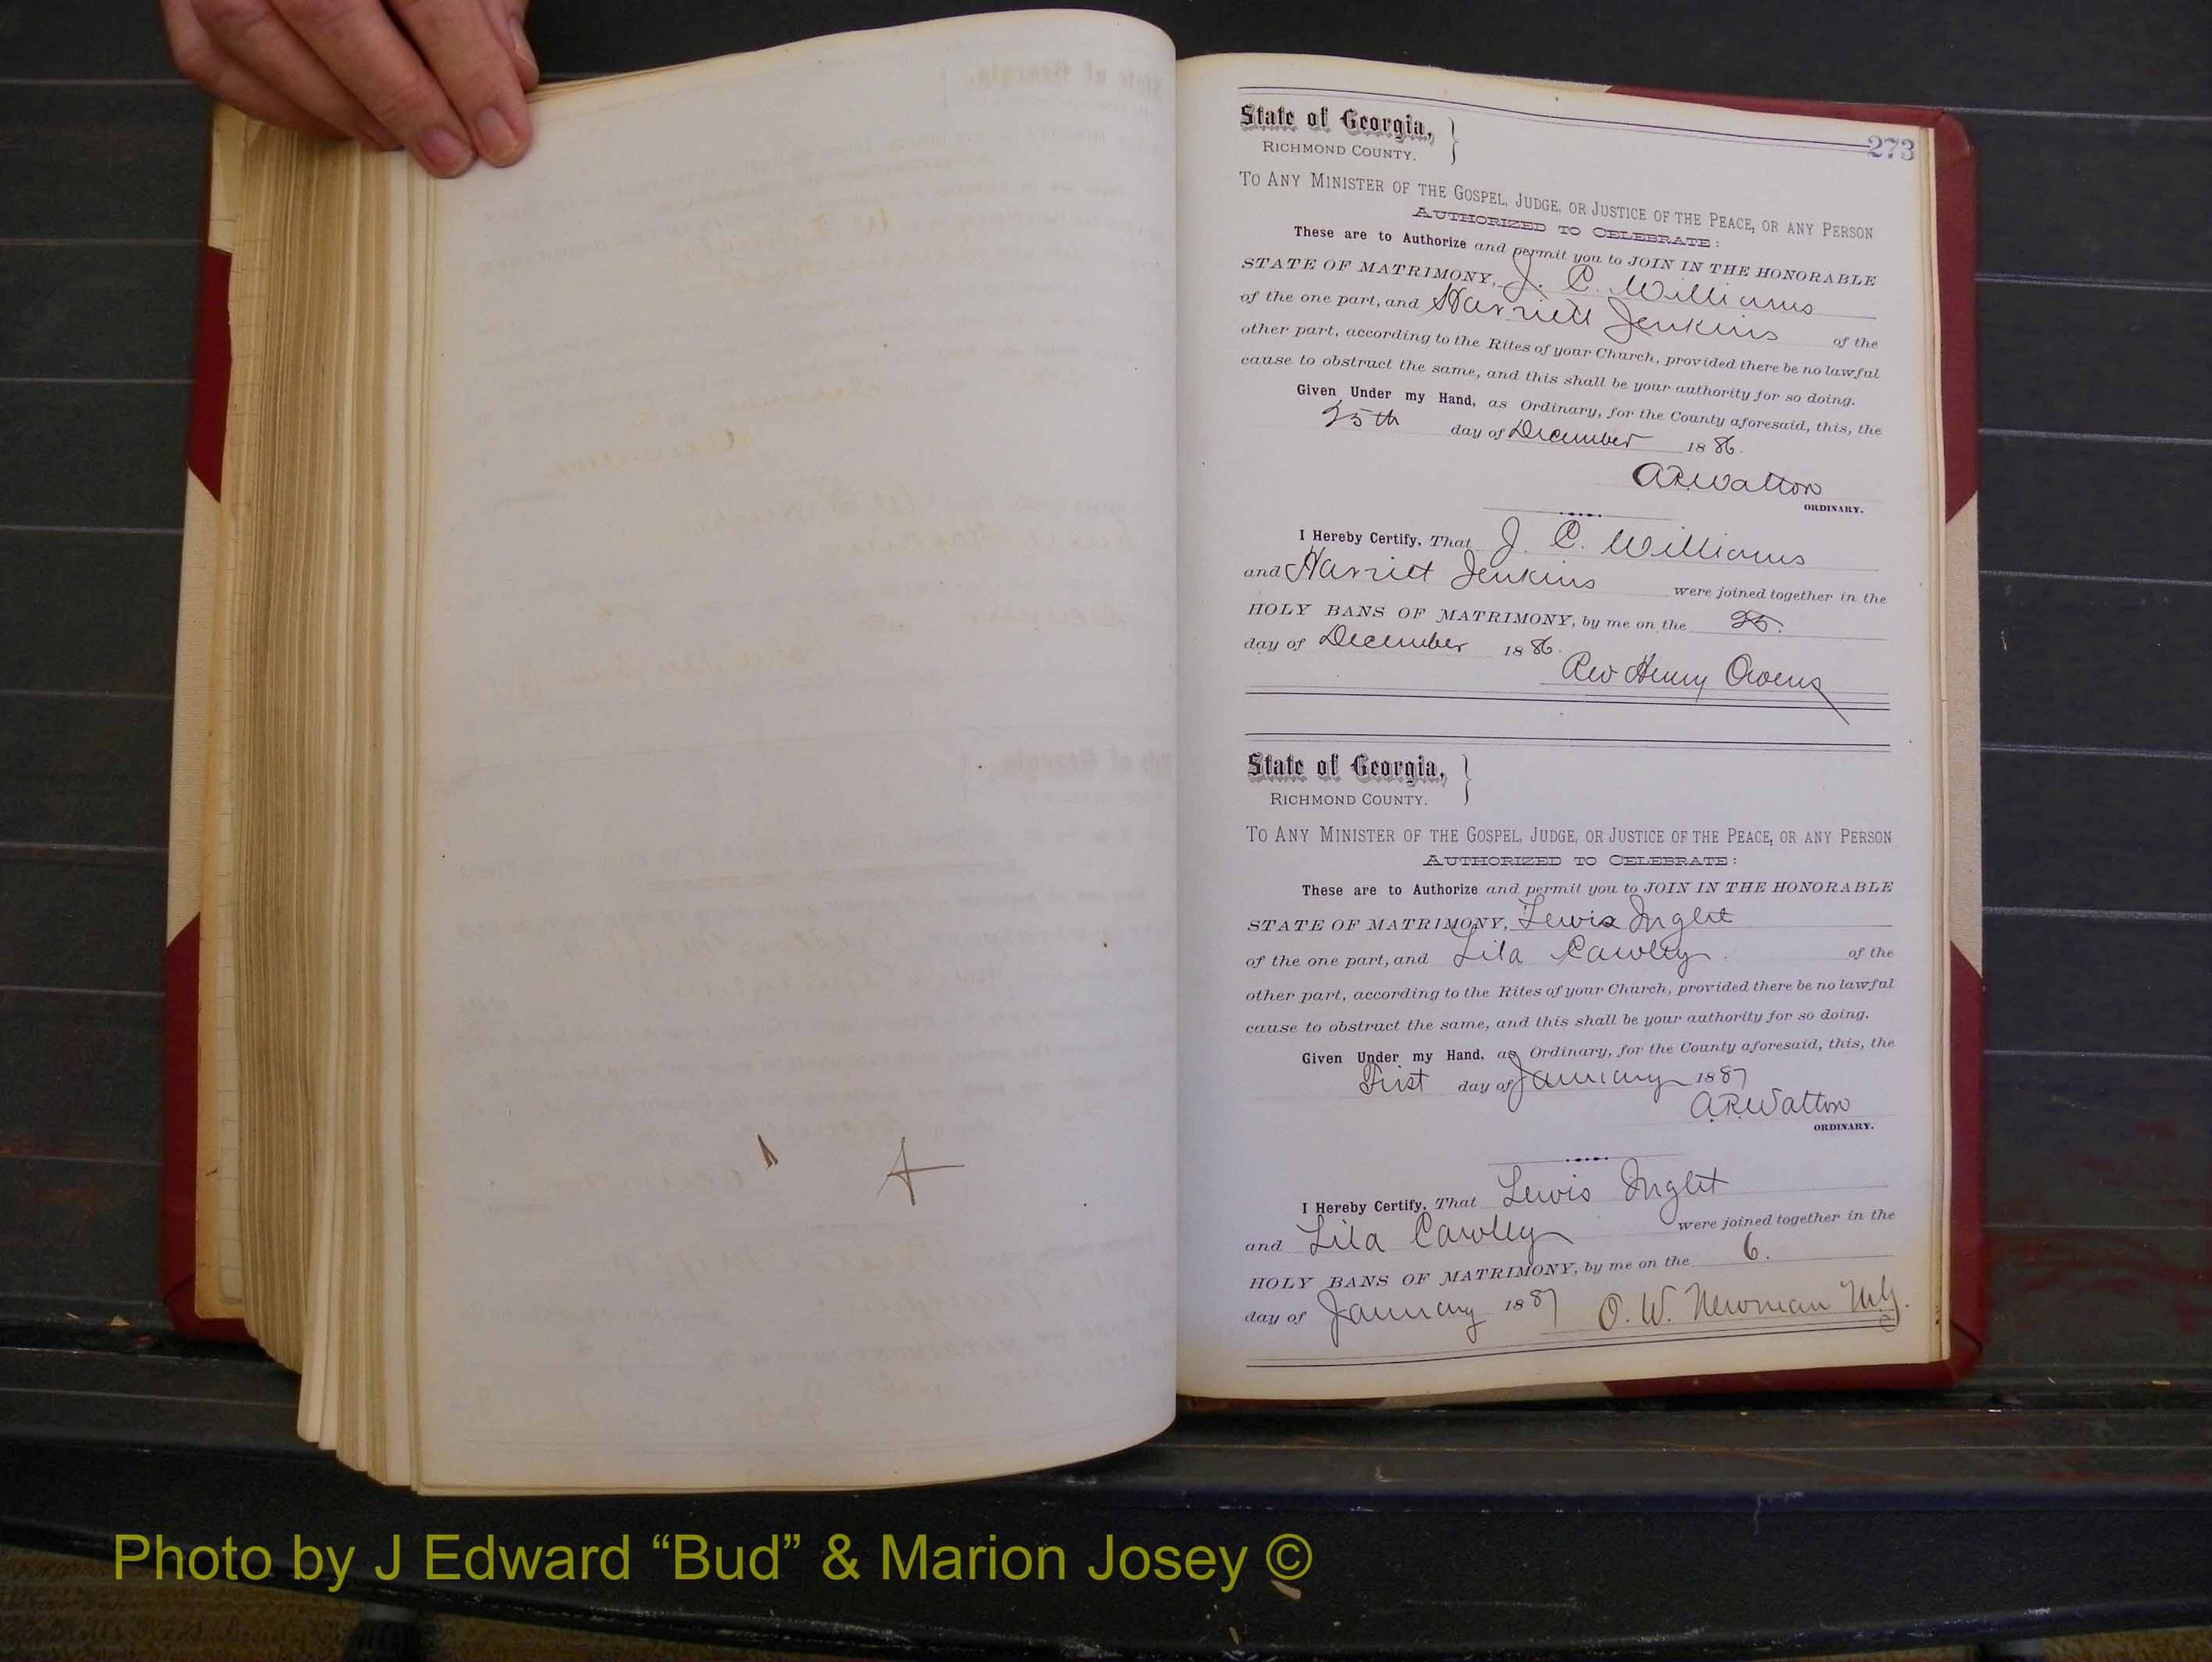 273
State of Georgia,
RICHMOND COUNTY.
TO ANY MINISTER OF THE GOSPEL, JUDGE, OR JUSTICE OF THE PEACE, OR ANY PERSON
AUTHORIZED TO CELEBRATE:
These are to Authorize and permit you to JOIN IN THE HONORABLE
STATE OF MATRIMONY, J. C. Williams
of the one part, and Harriett Jenkins of the
other part, according to the Rites of your Church, provided there be no lawful
cause to obstruct the same, and this shall be your authority for so doing.
Given Under my Hand, as Ordinary, for the County aforesaid, this, the
25th day of December 1886.
A.R. Walton
ORDINARY.
I Hereby Certify, That J. C. Williams
and Harriet Jenkins were joined together in the
HOLY BANS OF MATRIMONY, by me on the 25.
day of December 1886.
Rev Henry Owens
State of Georgia,
RICHMOND COUNTY.
TO ANY MINISTER OF THE GOSPEL, JUDGE, OR JUSTICE OF THE PEACE, OR ANY PERSON
AUTHORIZED TO CELEBRATE:
These are to Authorize and permit you to JOIN IN THE HONORABLE
STATE OF MATRIMONY, Lewis Inglet
of the one part, and Lila Cawley. of the
other part, according to the Rites of your Church, provided there be no lawful
cause to obstruct the same, and this shall be your authority for so doing.
Given Under my Hand, as Ordinary, for the County aforesaid, this, the
First day of January 1887
A.R. Walton
ORDINARY.
I Hereby Certify, That Lewis Inglet
and Lila Cawley were joined together in the
HOLY BANS OF MATRIMONY, by me on the 6.
day of January 1887 O. W. Newman M.G.
Photo by J Edward “Bud” & Marion Josey ©